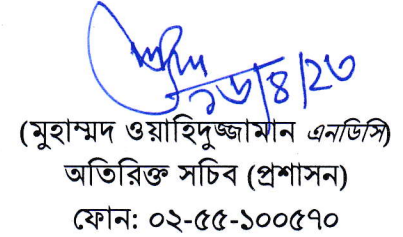 ১৬/৪/২৩
(মুহাম্মদ ওয়াহিদুজ্জামান এনডিসি)
অতিরিক্ত সচিব (প্রশাসন)
ফোন: ০২-৫৫-১০০৫৭০